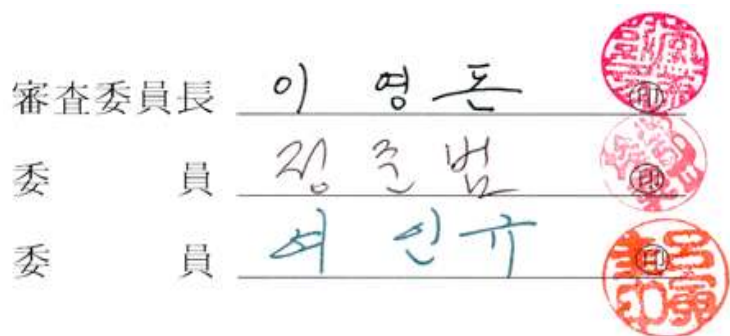 審査委員長 이 영 돈 ㊞
委 員 정 준 범 ㊞
委 員 여 인 규 ㊞